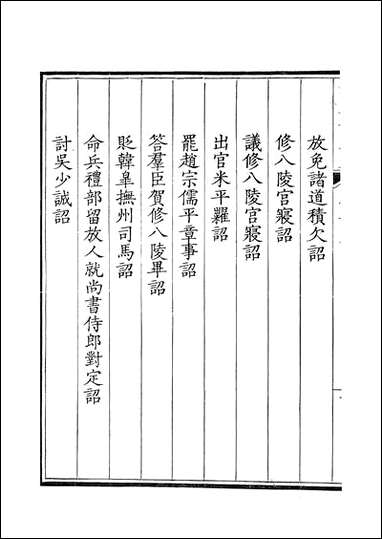 放免諸道積欠詔
修八陵宮寢詔
議修八陵宮寢詔
出官米平糶詔
罷趙宗儒平章事詔
答羣臣賀修八陵畢詔
貶韓皐撫州司馬詔
命兵禮部留放人就尚書侍郎對定詔
討吳少誠詔